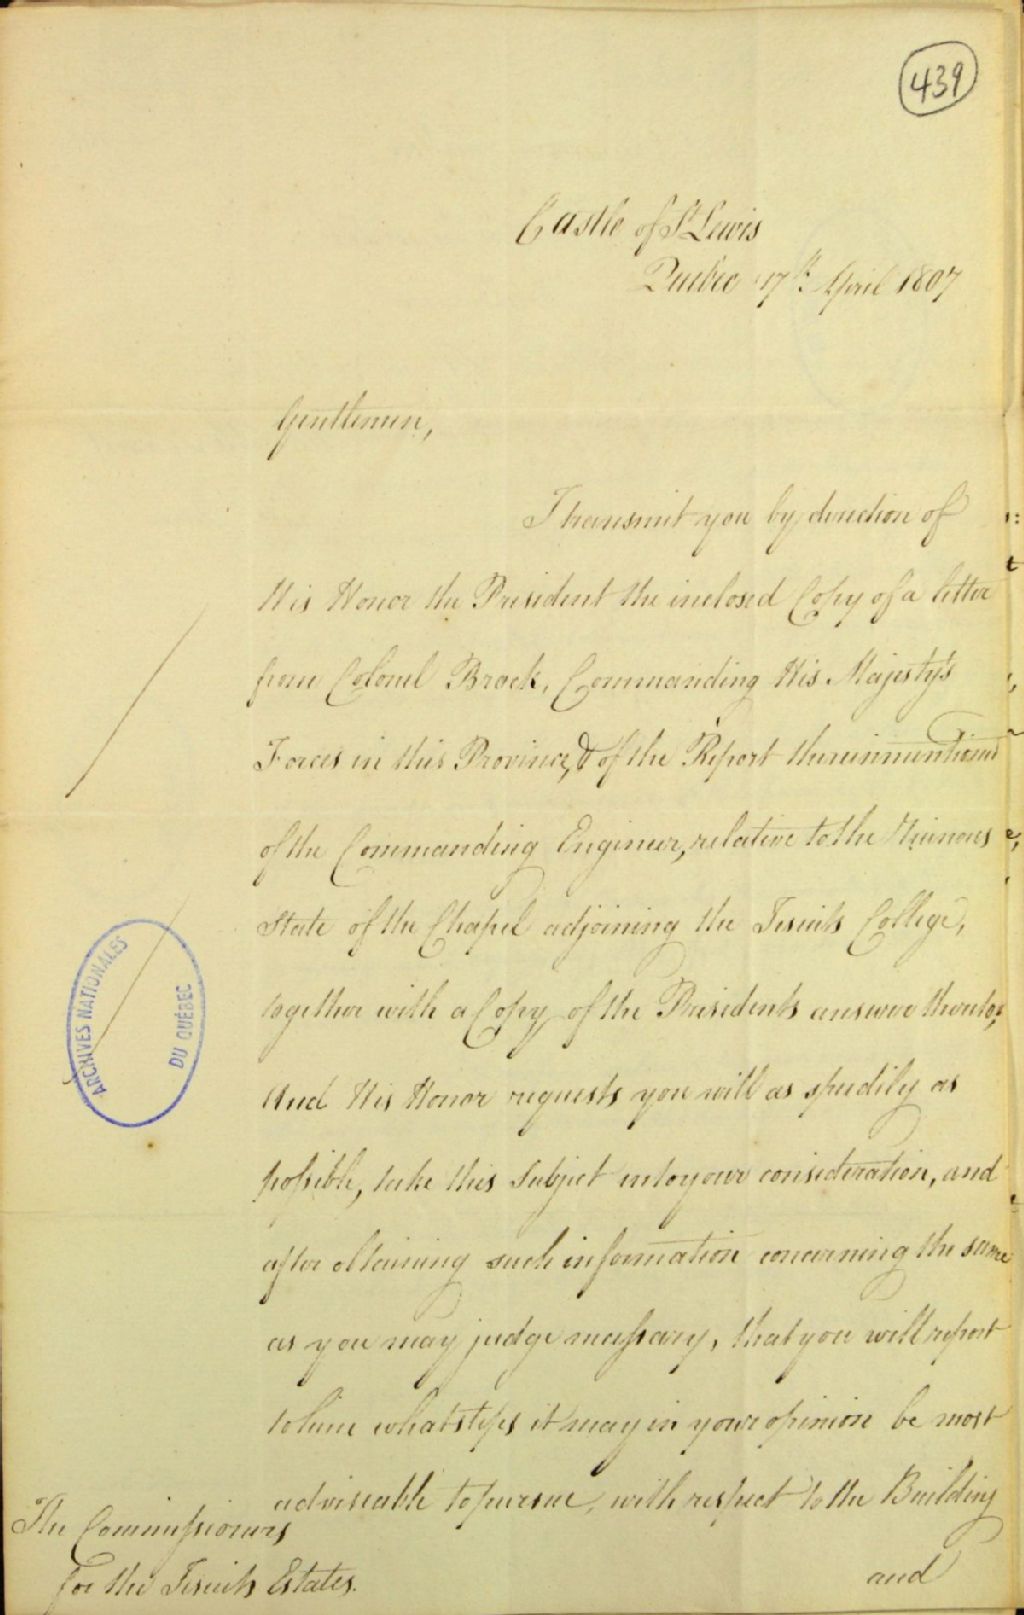 439
Castle of St Lewis
Quebec 17th April 1807
Gentlemen,
I transmit you by direction of
His Honor the President the inclosed Copy of a letter
from Colonel Brock, Commanding His Majesty's
Forces in this Province, & of the Report thereinmentioned
of the Commanding Engineer, relative to the Ruinous
State of the Chapel adjoining the Jesuits College,
together with a Copy of the Presidents answer thereto,
And His Honor requests you will as speedily as
possible, take this Subject into your consideration, and
after obtaining such information concerning the same
as you may judge necessary, that you will report
to him what steps it may in your opinion be most
adviseable to pursue, with respect to the Building
and
The Commissioners
for the Jesuits Estates.
ARCHIVES NATIONALES
DU QUÉBEC